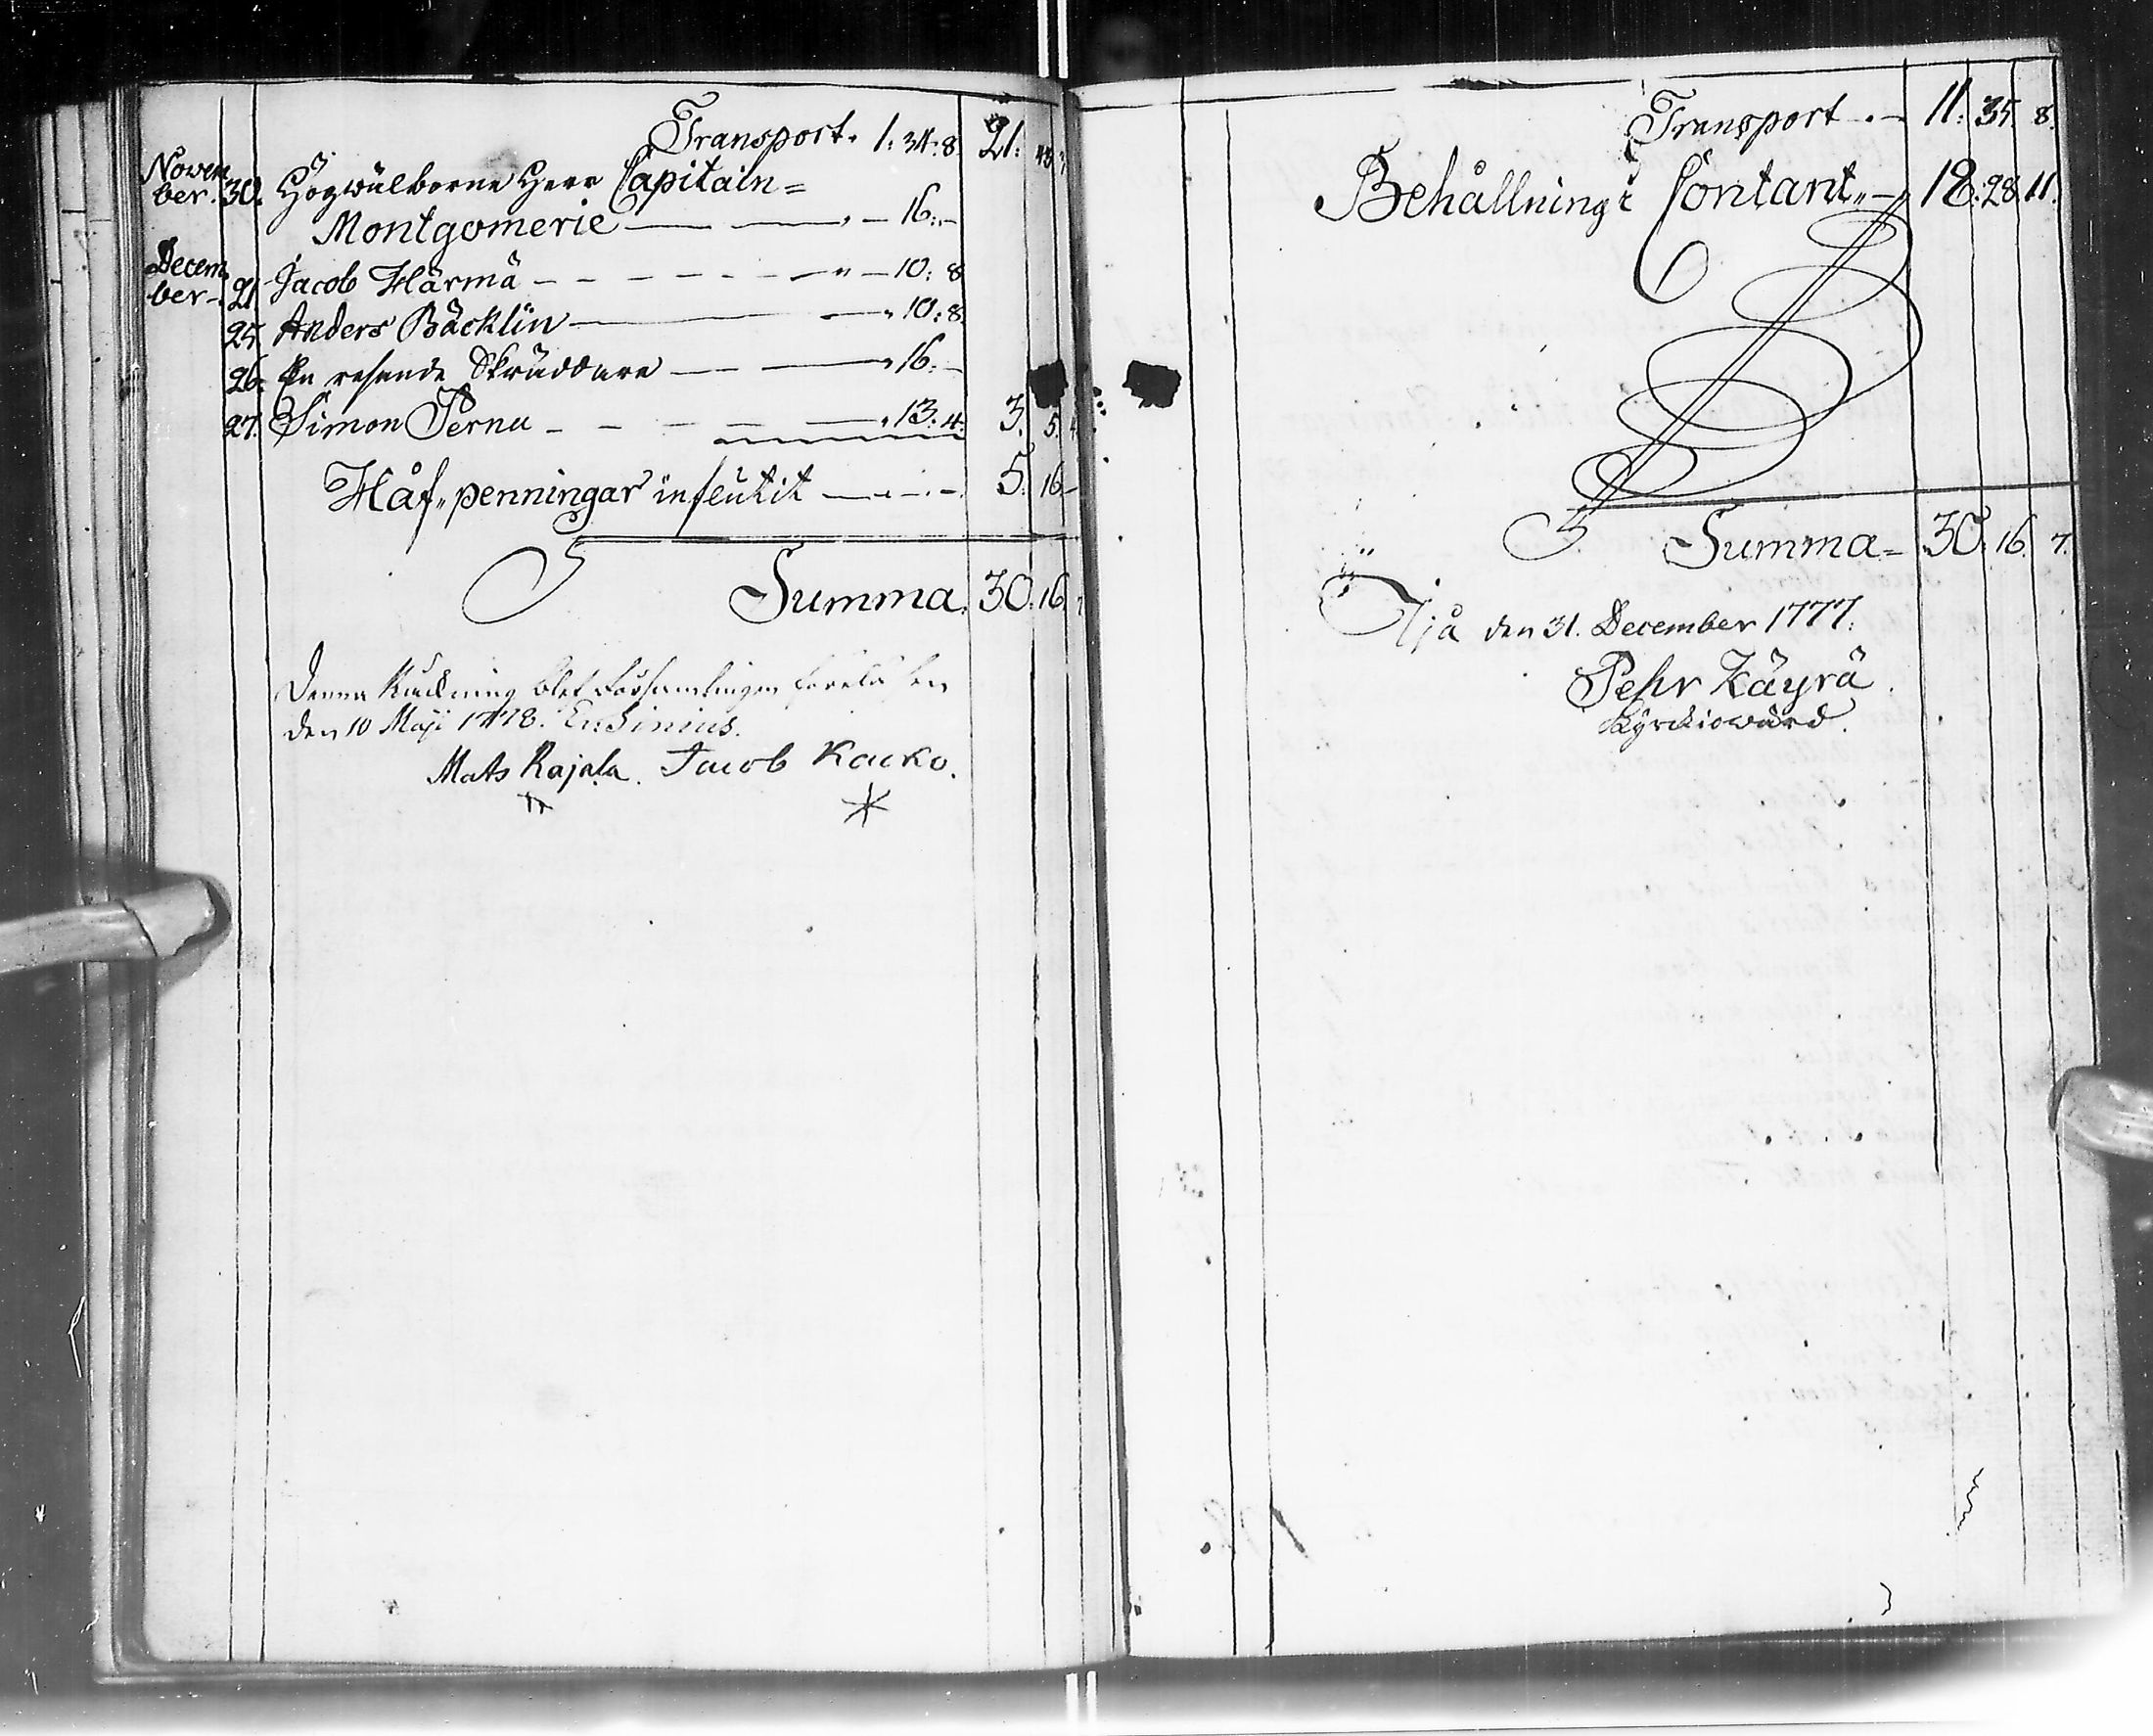 Transport. 1: 34: 8. 21: 43
Novem
ber. 30. Högwälborne Herr Capitain=
Montgomerie — 16: -
Decem
ber. 21. Jacob Härmä — 10: 8
25. Anders Bäcklin — 10: 8.
26. En resande Skräddare — 16. -
27. Simon Pernu — 13: 4. 3. 5. 4
Håf„penningar influtit — 5. 16 -
Summa. 30. 16.
Denna Räckning blef Församlingen föreläsen
den 10 Maji 1778.
Mats Rajala. Jacob Kacko.
Transport — 11: 35. 8.
Behållning i Contant„ — 18: 28. 11.
Summa = 30. 16. 7.
Ijå den 31. December 1777.
Pehr Käyrä.
Kyrckiowärd.